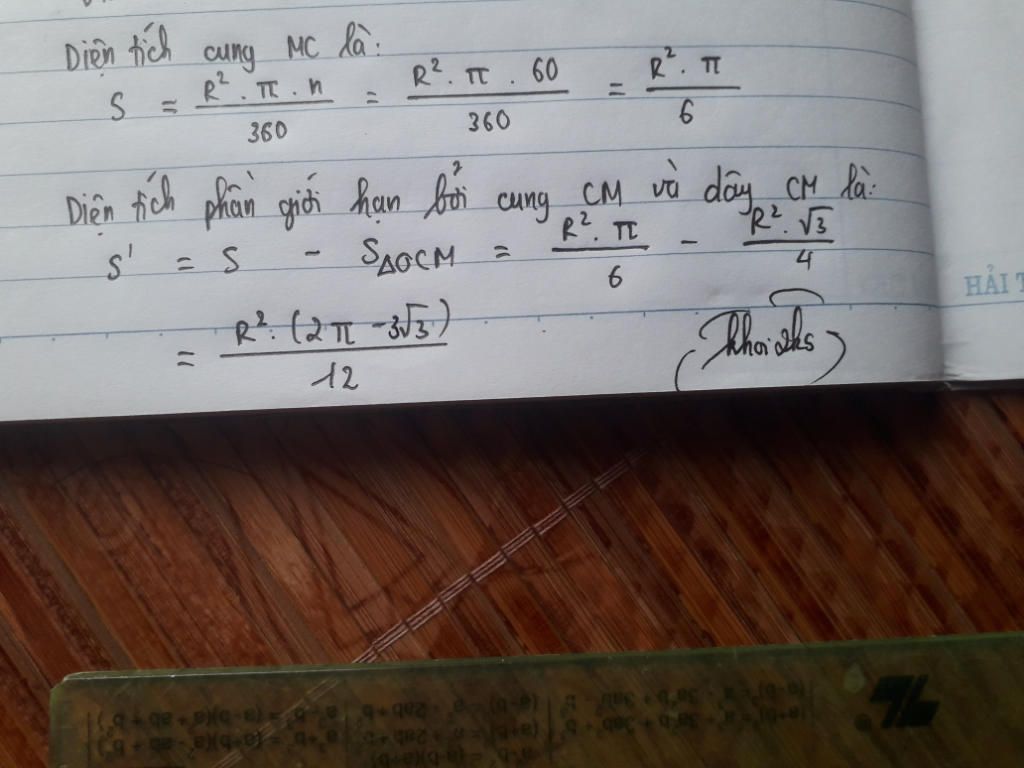 Diện tích cung MC là:
S = R² . π . n / 360 = R² . π . 60 / 360 = R² . π / 6
Diện tích phần giới hạn bởi cung CM và dây CM là:
S' = S - S△OCM = R² . π / 6 - R² . √3 / 4
= R² . (2π - 3√3) / 12
HẢI T